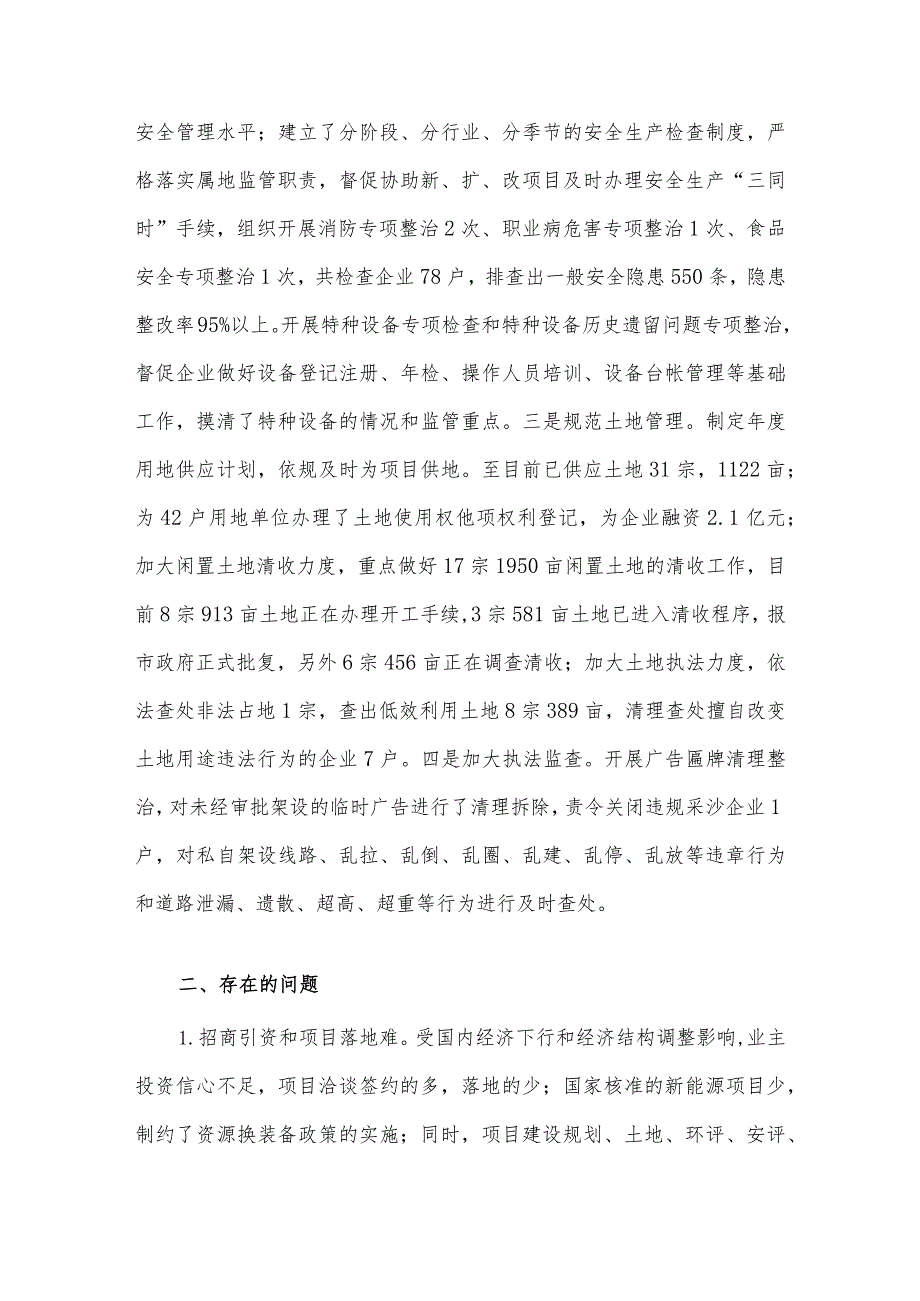 安全管理水平；建立了分阶段、分行业、分季节的安全生产检查制度，严
格落实属地监管职责，督促协助新、扩、改项目及时办理安全生产“三同
时”手续，组织开展消防专项整治2次、职业病危害专项整治1次、食品
安全专项整治1次，共检查企业78户，排查出一般安全隐患550条，隐患
整改率95%以上。开展特种设备专项检查和特种设备历史遗留问题专项整治，
督促企业做好设备登记注册、年检、操作人员培训、设备台帐管理等基础
工作，摸清了特种设备的情况和监管重点。三是规范土地管理。制定年度
用地供应计划，依规及时为项目供地。至目前已供应土地31宗，1122亩；
为42户用地单位办理了土地使用权他项权利登记，为企业融资2.1亿元；
加大闲置土地清收力度，重点做好17宗1950亩闲置土地的清收工作，目
前8宗913亩土地正在办理开工手续,3宗581亩土地已进入清收程序，报
市政府正式批复，另外6宗456亩正在调查清收；加大土地执法力度，依
法查处非法占地1宗，查出低效利用土地8宗389亩，清理查处擅自改变
土地用途违法行为的企业7户。四是加大执法监查。开展广告匾牌清理整
治，对未经审批架设的临时广告进行了清理拆除，责令关闭违规采沙企业1
户，对私自架设线路、乱拉、乱倒、乱圈、乱建、乱停、乱放等违章行为
和道路泄漏、遗散、超高、超重等行为进行及时查处。
二、存在的问题
1.招商引资和项目落地难。受国内经济下行和经济结构调整影响,业主
投资信心不足，项目洽谈签约的多，落地的少；国家核准的新能源项目少，
制约了资源换装备政策的实施；同时，项目建设规划、土地、环评、安评、